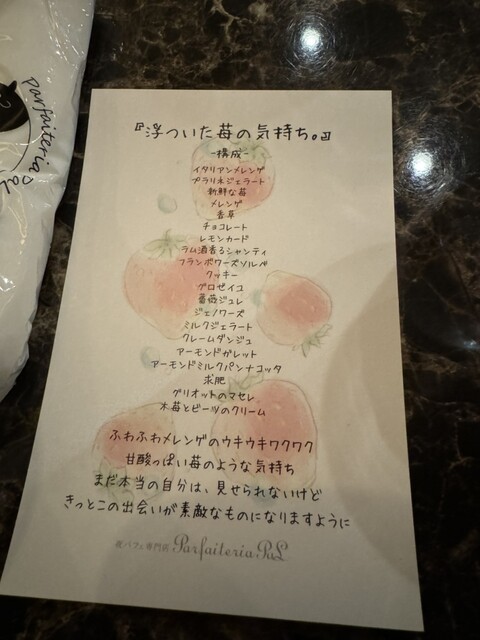 Parfaiteria
『浮ついた苺の気持ち。』
-構成-
イタリアンメレンゲ
プラリネジェラート
新鮮な苺
メレンゲ
香草
チョコレート
レモンカード
ラム酒香るシャンティ
フランボワーズソルベ
クッキー
グロゼイユ
薔薇ジュレ
ジェノワーズ
ミルクジェラート
クレームダンジュ
アーモンドガレット
アーモンドミルクパンナコッタ
求肥
グリオットのマセレ
木苺とビーツのクリーム
ふわふわメレンゲのウキウキワクワク
甘酸っぱい苺のような気持ち
まだ本当の自分は、見せられないけど
きっとこの出会いが素敵なものになりますように
夜パフェ専門店 Parfaiteria PaL